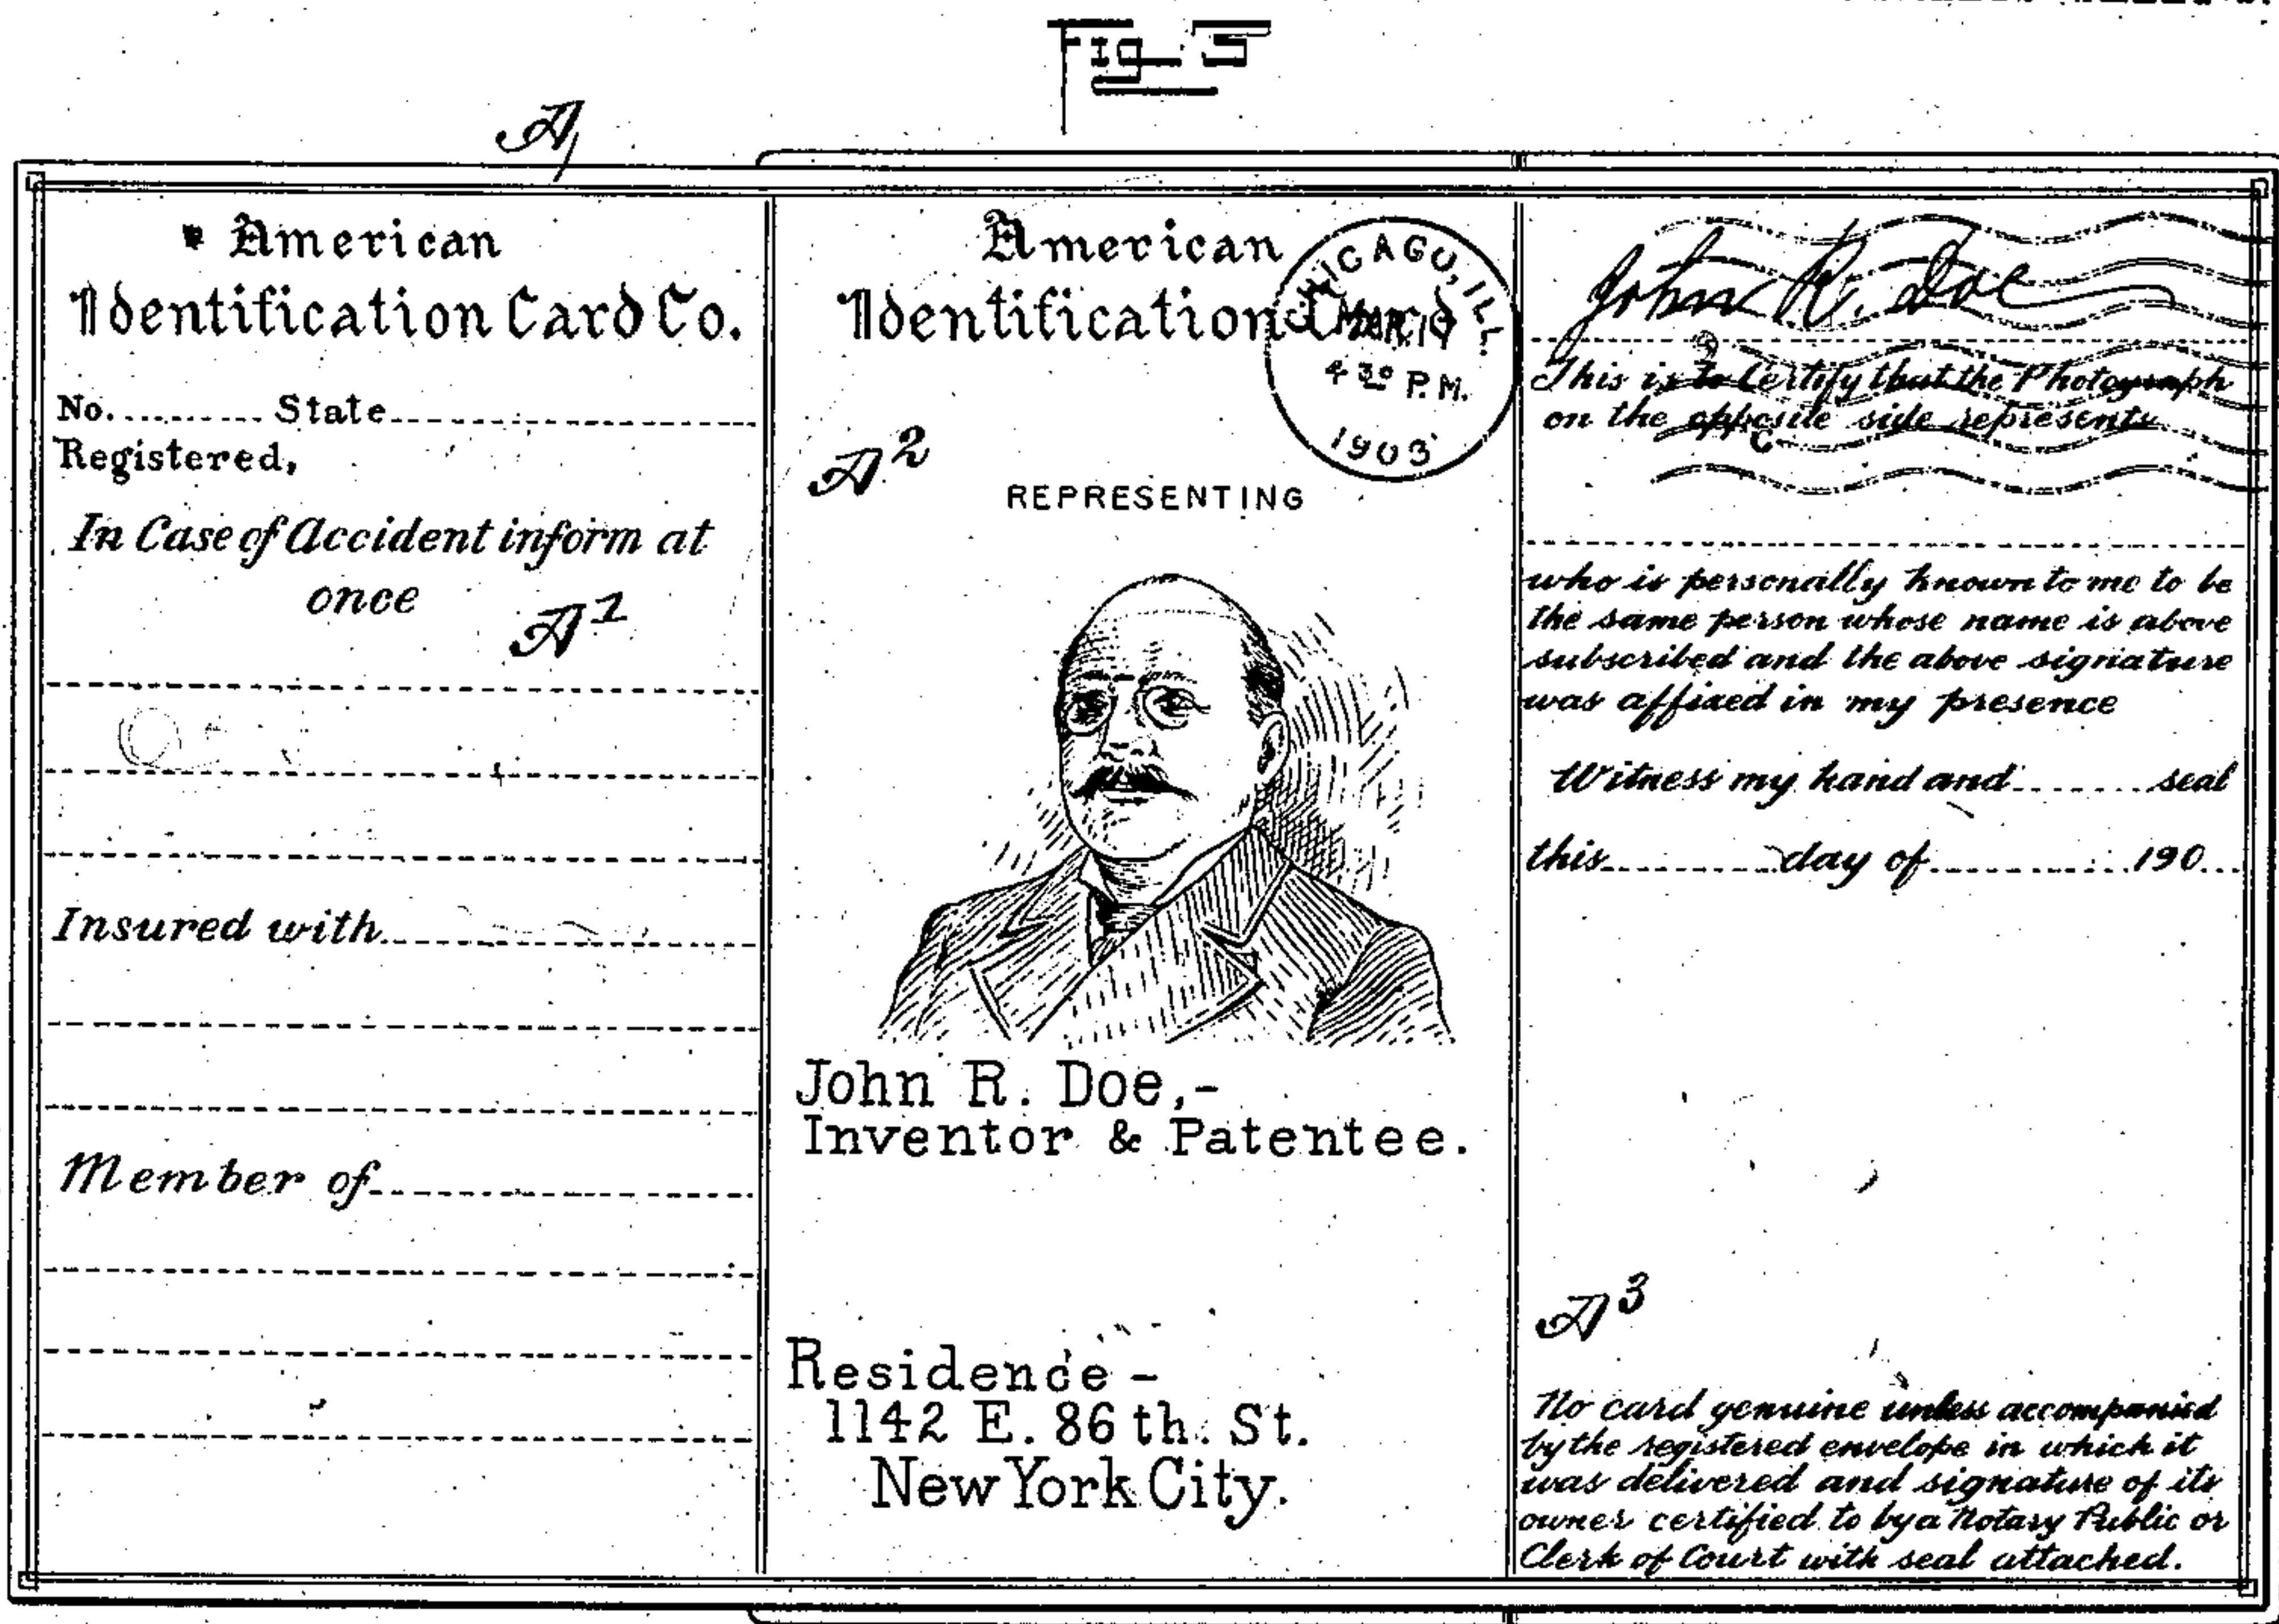 Fig. 5
A
American
Identification Card Co.
No. .......... State ..............................
Registered,
In Case of Accident inform at
once
A1
Insured with ..............................
Member of ..............................
American
Identification Card
CHICAGO, ILL.
MAR. 19
4 30 P.M.
1903
A2
REPRESENTING
John R. Doe,-
Inventor & Patentee.
Residence -
1142 E. 86th. St.
New York City.
John R. Doe
This is to Certify that the Photograph
on the opposite side represents
c
who is personally known to me to be
the same person whose name is above
subscribed and the above signature
was affixed in my presence
Witness my hand and ........ seal
this ............ day of .............. 190...
A3
No card genuine unless accompanied
by the registered envelope in which it
was delivered and signature of its
owner certified to by a Notary Public or
Clerk of Court with seal attached.